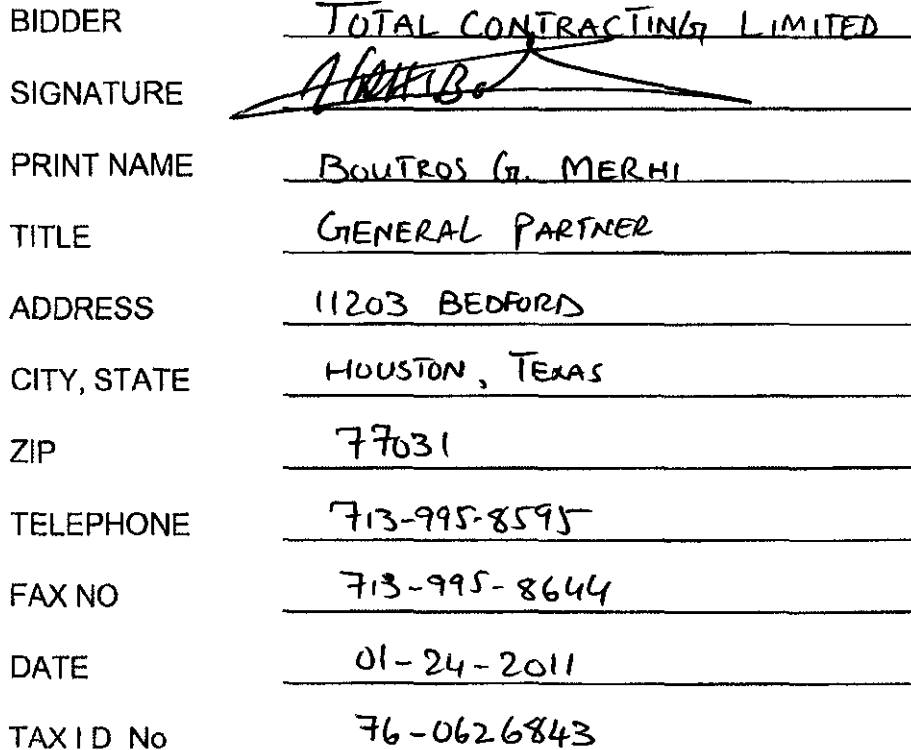 BIDDER TOTAL CONTRACTING LIMITED
SIGNATURE
PRINT NAME BOUTROS G. MERHI
TITLE GENERAL PARTNER
ADDRESS 11203 BEDFORD
CITY, STATE HOUSTON, TEXAS
ZIP 77031
TELEPHONE 713-995-8595
FAX NO 713-995-8644
DATE 01-24-2011
TAX I D No 76-0626843